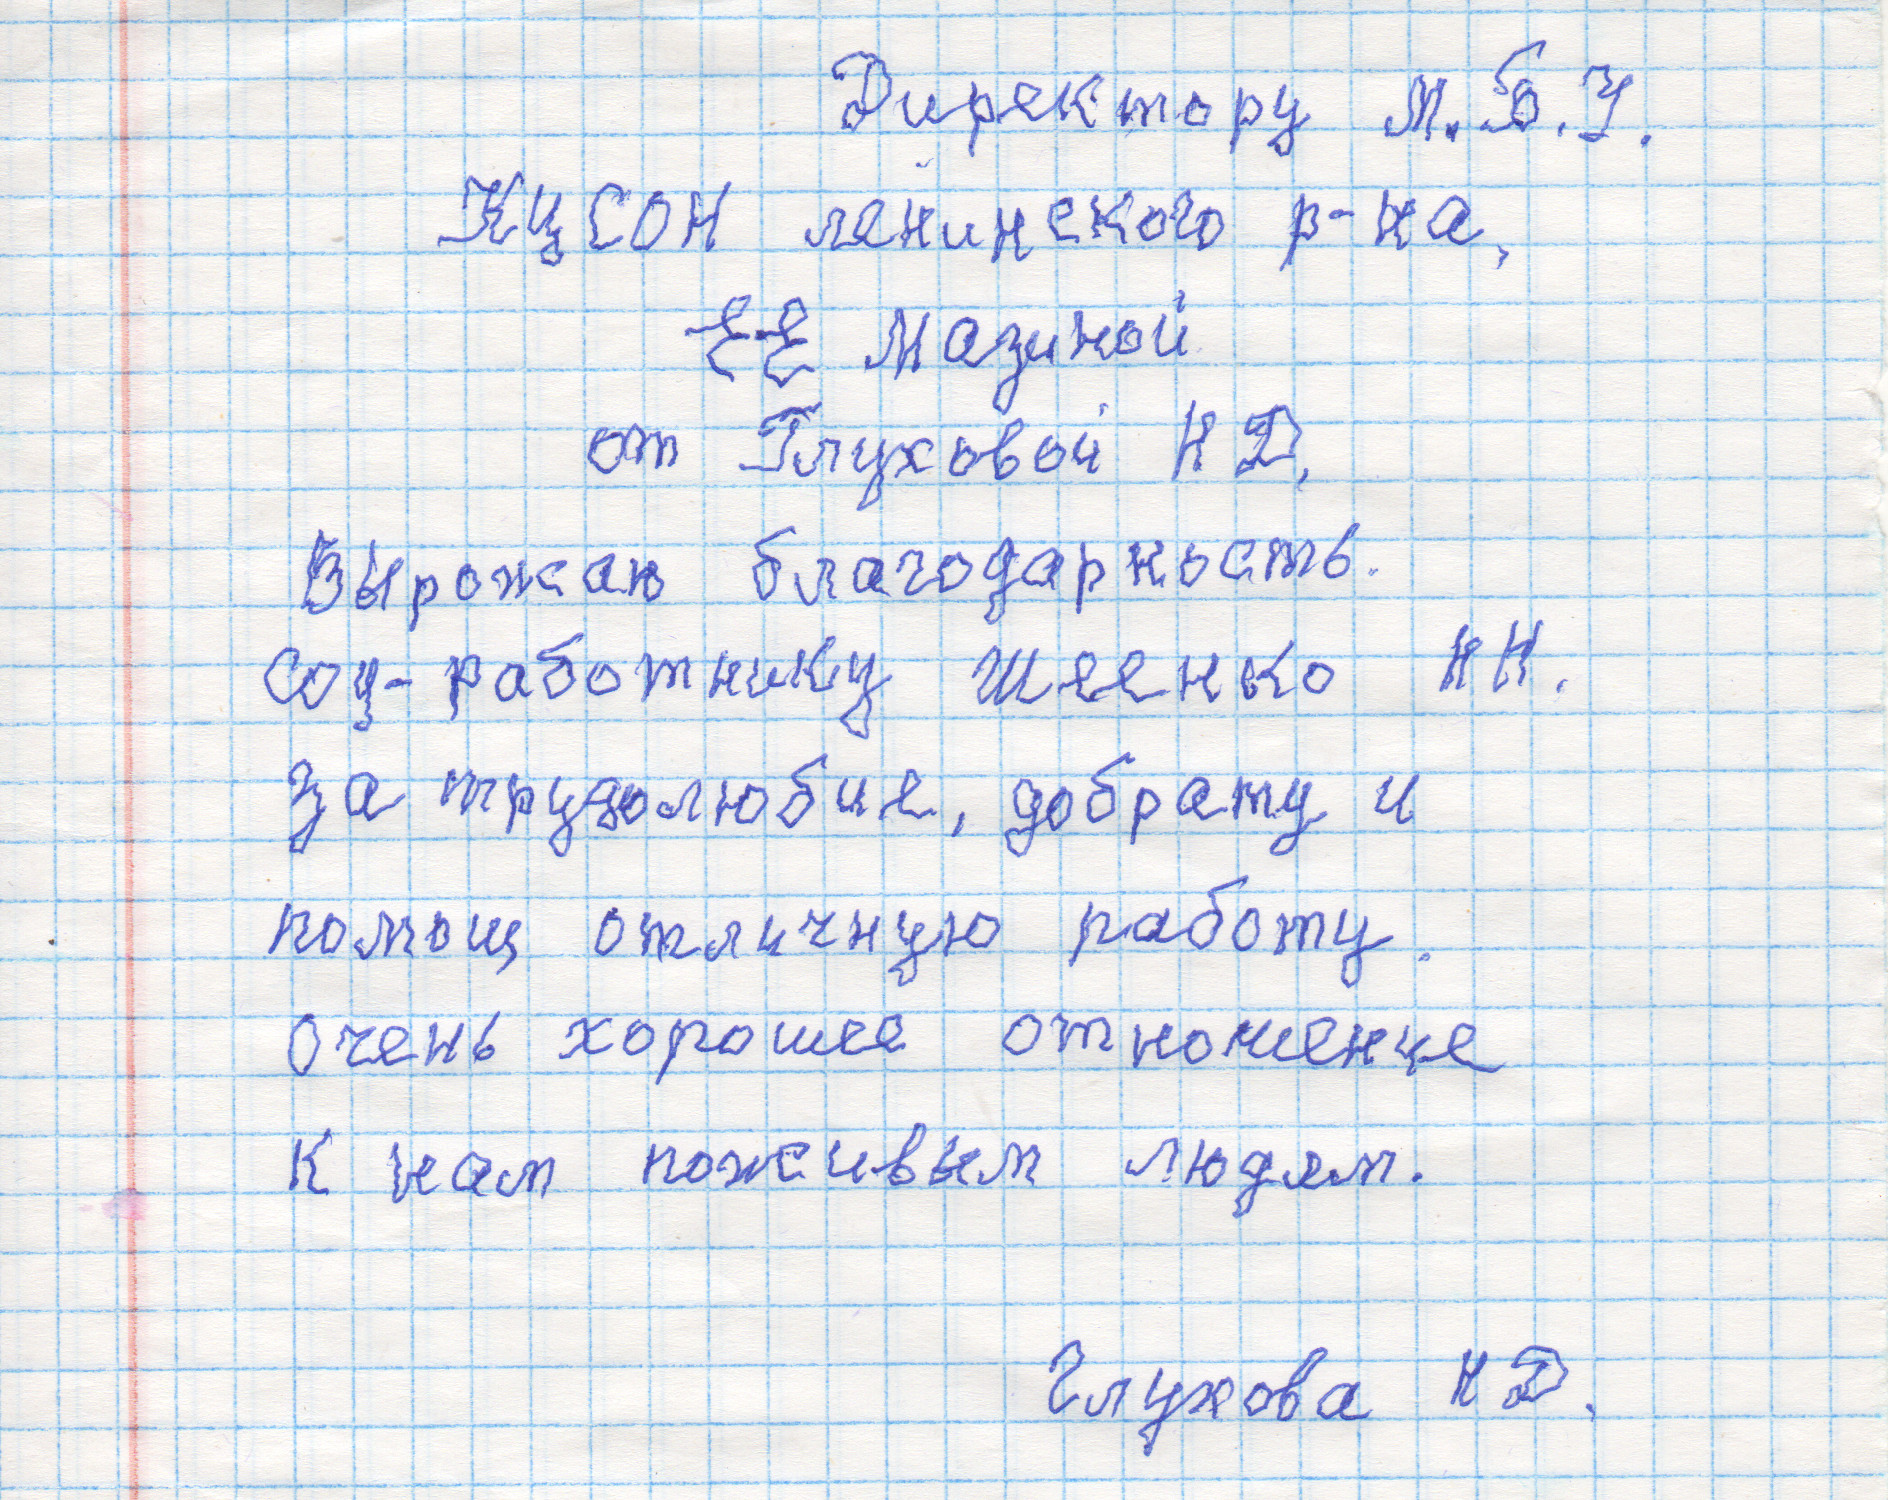 Директору М.Б.У.
КЦСОН ленинского р-на,
ЕЕ Мазиной
от Глуховой Н Д.
Вырожаю благодарность.
соц-работнику Шеенко Н Н.
за трудолюбие, добрату и
помощ отличную работу.
очень хорошее отношение
к нам поживым людям.
Глухова Н Д.